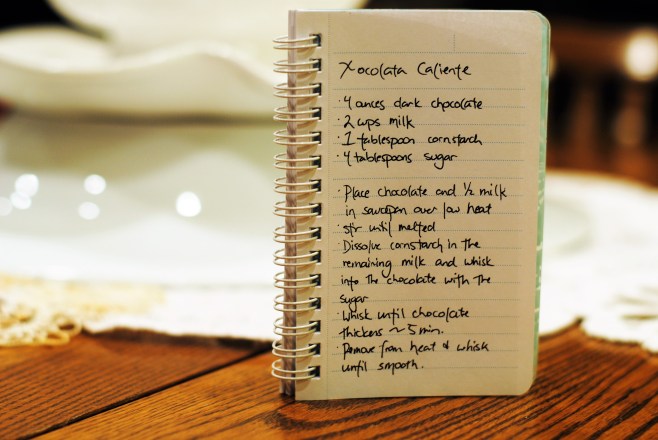 Xocolata Caliente
· 4 ounces dark chocolate
· 2 cups milk
· 1 tablespoon cornstarch
· 4 tablespoons sugar
· Place chocolate and 1/2 milk
in saucepan over low heat
stir until melted
· Dissolve cornstarch in the
remaining milk and whisk
into the chocolate with the
sugar
· Whisk until chocolate
thickens ~ 5 min.
· Remove from heat & whisk
until smooth.